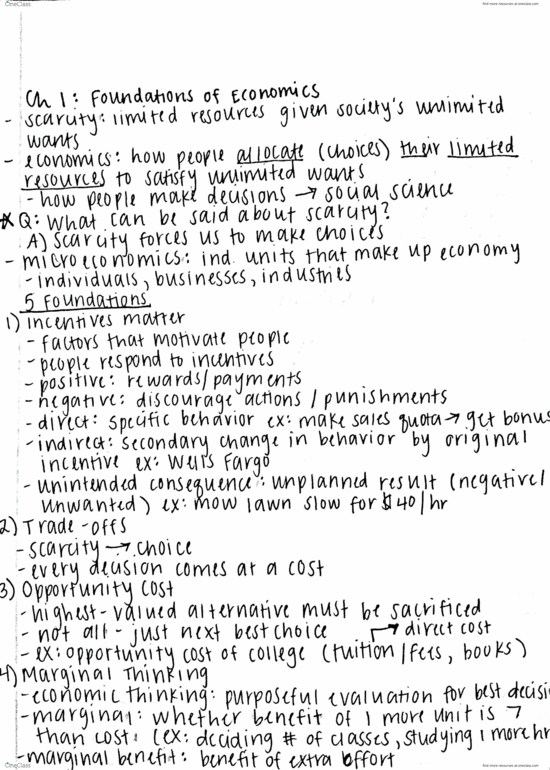 OneClass
find more resources at oneclass.com
Ch 1: Foundations of Economics
- scarcity: limited resources given society's unlimited
wants
- economics: how people allocate (choices) their limited
resources to satisfy unlimited wants
- how people make decisions → social science
* Q: What can be said about scarcity?
A) Scarcity forces us to make choices
- microeconomics: ind. units that make up economy
- individuals, businesses, industries
5 Foundations
1) Incentives matter
- factors that motivate people
- people respond to incentives
- positive: rewards/payments
- negative: discourage actions / punishments
- direct: specific behavior ex: make sales quota → get bonus
- indirect: secondary change in behavior by original
incentive ex: Wells Fargo
- unintended consequence: unplanned result (negative/
unwanted) ex: mow lawn slow for $40/hr
2) Trade-offs
- scarcity → choice
- every decision comes at a cost
3) Opportunity Cost
- highest-valued alternative must be sacrificed
- not all - just next best choice → direct cost
- ex: opportunity cost of college (tuition/fees, books)
4) Marginal Thinking
- economic thinking: purposeful evaluation for best decisi
- marginal: whether benefit of 1 more unit is >
than cost. (ex: deciding # of classes, studying 1 more hr
- marginal benefit: benefit of extra effort
OneClass
find more resources at oneclass.com